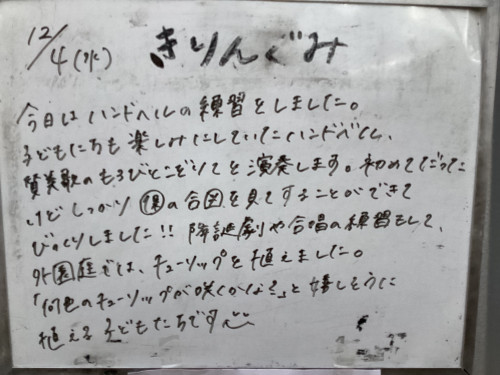 12/4(水) きりんぐみ
今日はハンドベルの練習をしました。
子どもたちも楽しみにしていたハンドベル、
賛美歌のもろびとこぞりてを演奏します。初めてだった
けどしっかり㋿の合図を見てすることができて
びっくりしました!! 降誕劇や合唱の練習もして、
外園庭では、チューリップを植えました。
「何色のチューリップが咲くかな?」と嬉しそうに
植える子どもたちです